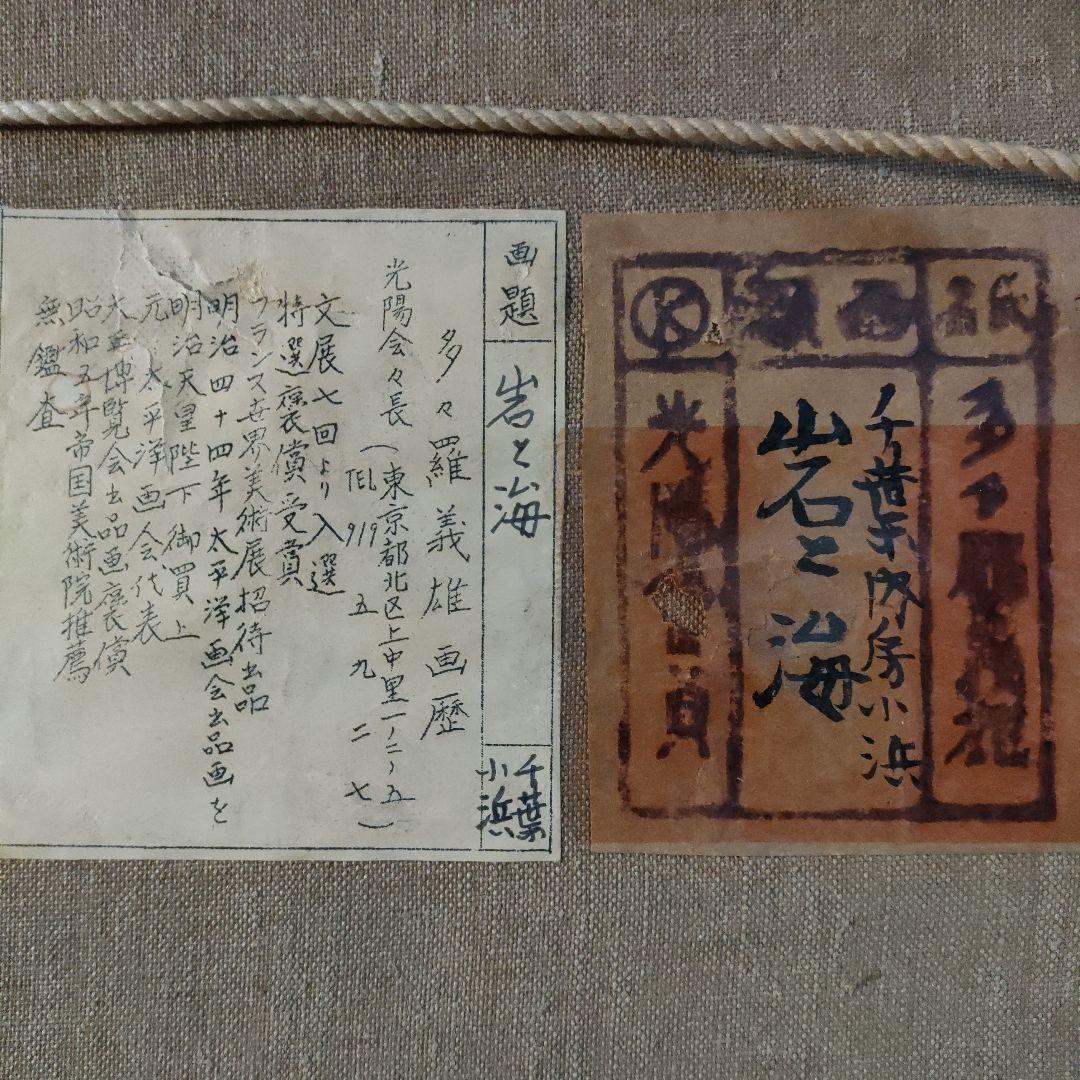 画題
岩と海
千葉
小浜
多々羅義雄画歴
光陽会々長(東京都北区上中里一ノ二ノ五
TEL 919 五九二七)
文展七回より入選
特選褒賞受賞
フランス世界美術展招待出品
明治四十四年太平洋画会出品画を
明治天皇陛下御買上
元、太平洋画会代表
大正博覧会出品画褒賞
昭和五年帝国美術院推薦
無鑑査
氏名
多々羅義雄
画題
千葉県内房小浜
岩と海
光陽会会員